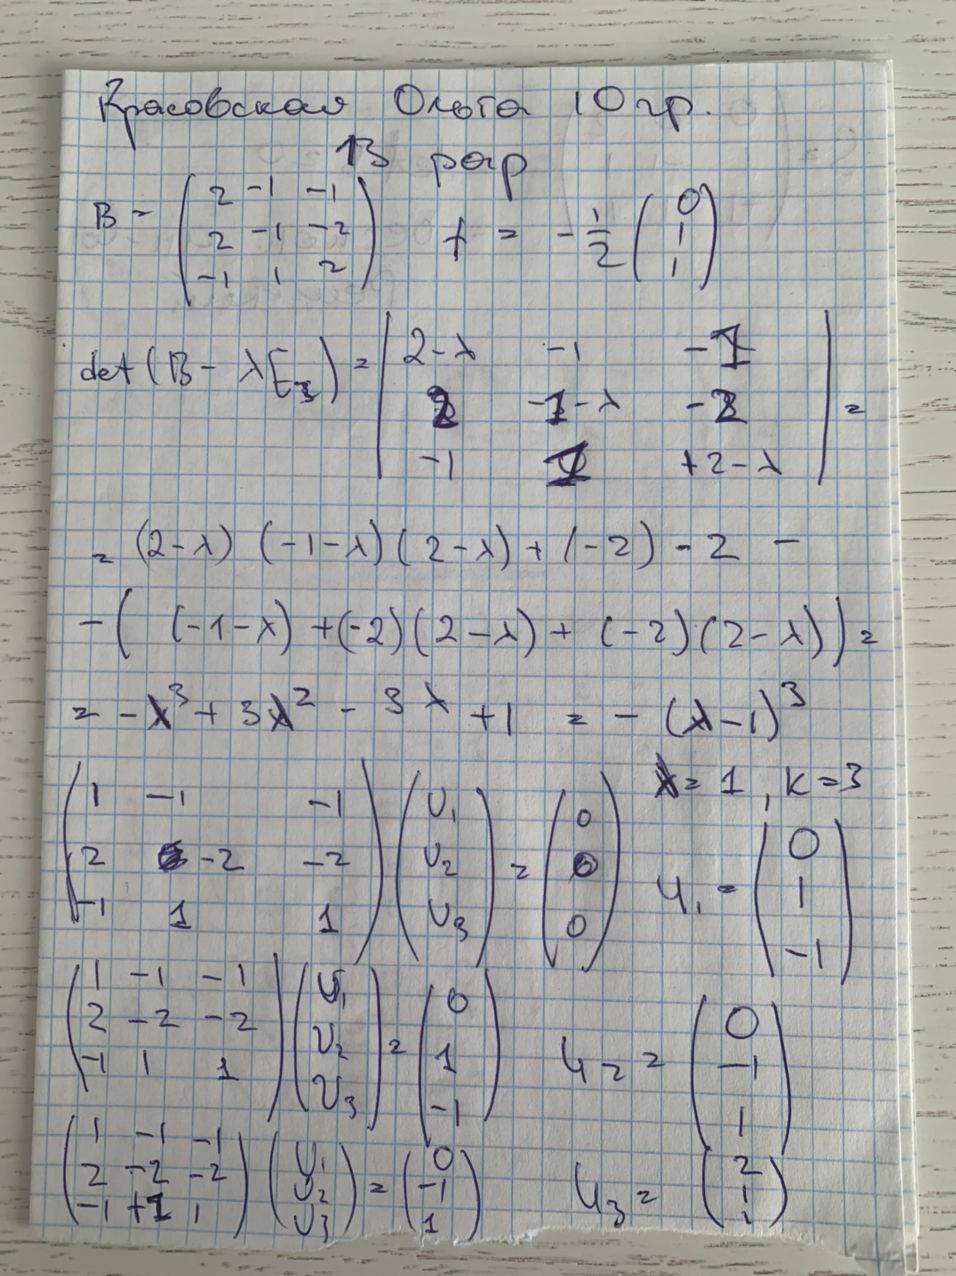 Красовская Ольга 10 гр.
13 разр
B = \begin{pmatrix} 2 & -1 & -1 \\ 2 & -1 & -2 \\ -1 & 1 & 2 \end{pmatrix} f = -\frac{1}{2} \begin{pmatrix} 0 \\ 1 \\ 1 \end{pmatrix}
det(B - λE_3) = \begin{vmatrix} 2-λ & -1 & -1 \\ 2 & -1-λ & -2 \\ -1 & 1 & +2-λ \end{vmatrix} =
= (2-λ) (-1-λ) (2-λ) + (-2) - 2 -
- ( (-1-λ) + (-2)(2-λ) + (-2)(2-λ)) =
= -λ^3 + 3λ^2 - 3λ + 1 = -(λ-1)^3
λ = 1, k = 3
\begin{pmatrix} 1 & -1 & -1 \\ 2 & -2 & -2 \\ -1 & 1 & 1 \end{pmatrix} \begin{pmatrix} U_1 \\ U_2 \\ U_3 \end{pmatrix} = \begin{pmatrix} 0 \\ 0 \\ 0 \end{pmatrix} U_1 = \begin{pmatrix} 0 \\ 1 \\ -1 \end{pmatrix}
\begin{pmatrix} 1 & -1 & -1 \\ 2 & -2 & -2 \\ -1 & 1 & 1 \end{pmatrix} \begin{pmatrix} U_1 \\ U_2 \\ U_3 \end{pmatrix} = \begin{pmatrix} 0 \\ 1 \\ -1 \end{pmatrix} U_2 = \begin{pmatrix} 0 \\ -1 \\ 1 \end{pmatrix}
\begin{pmatrix} 1 & -1 & -1 \\ 2 & -2 & -2 \\ -1 & +1 & 1 \end{pmatrix} \begin{pmatrix} U_1 \\ U_2 \\ U_3 \end{pmatrix} = \begin{pmatrix} 0 \\ -1 \\ 1 \end{pmatrix} U_3 = \begin{pmatrix} 2 \\ 1 \\ 1 \end{pmatrix}